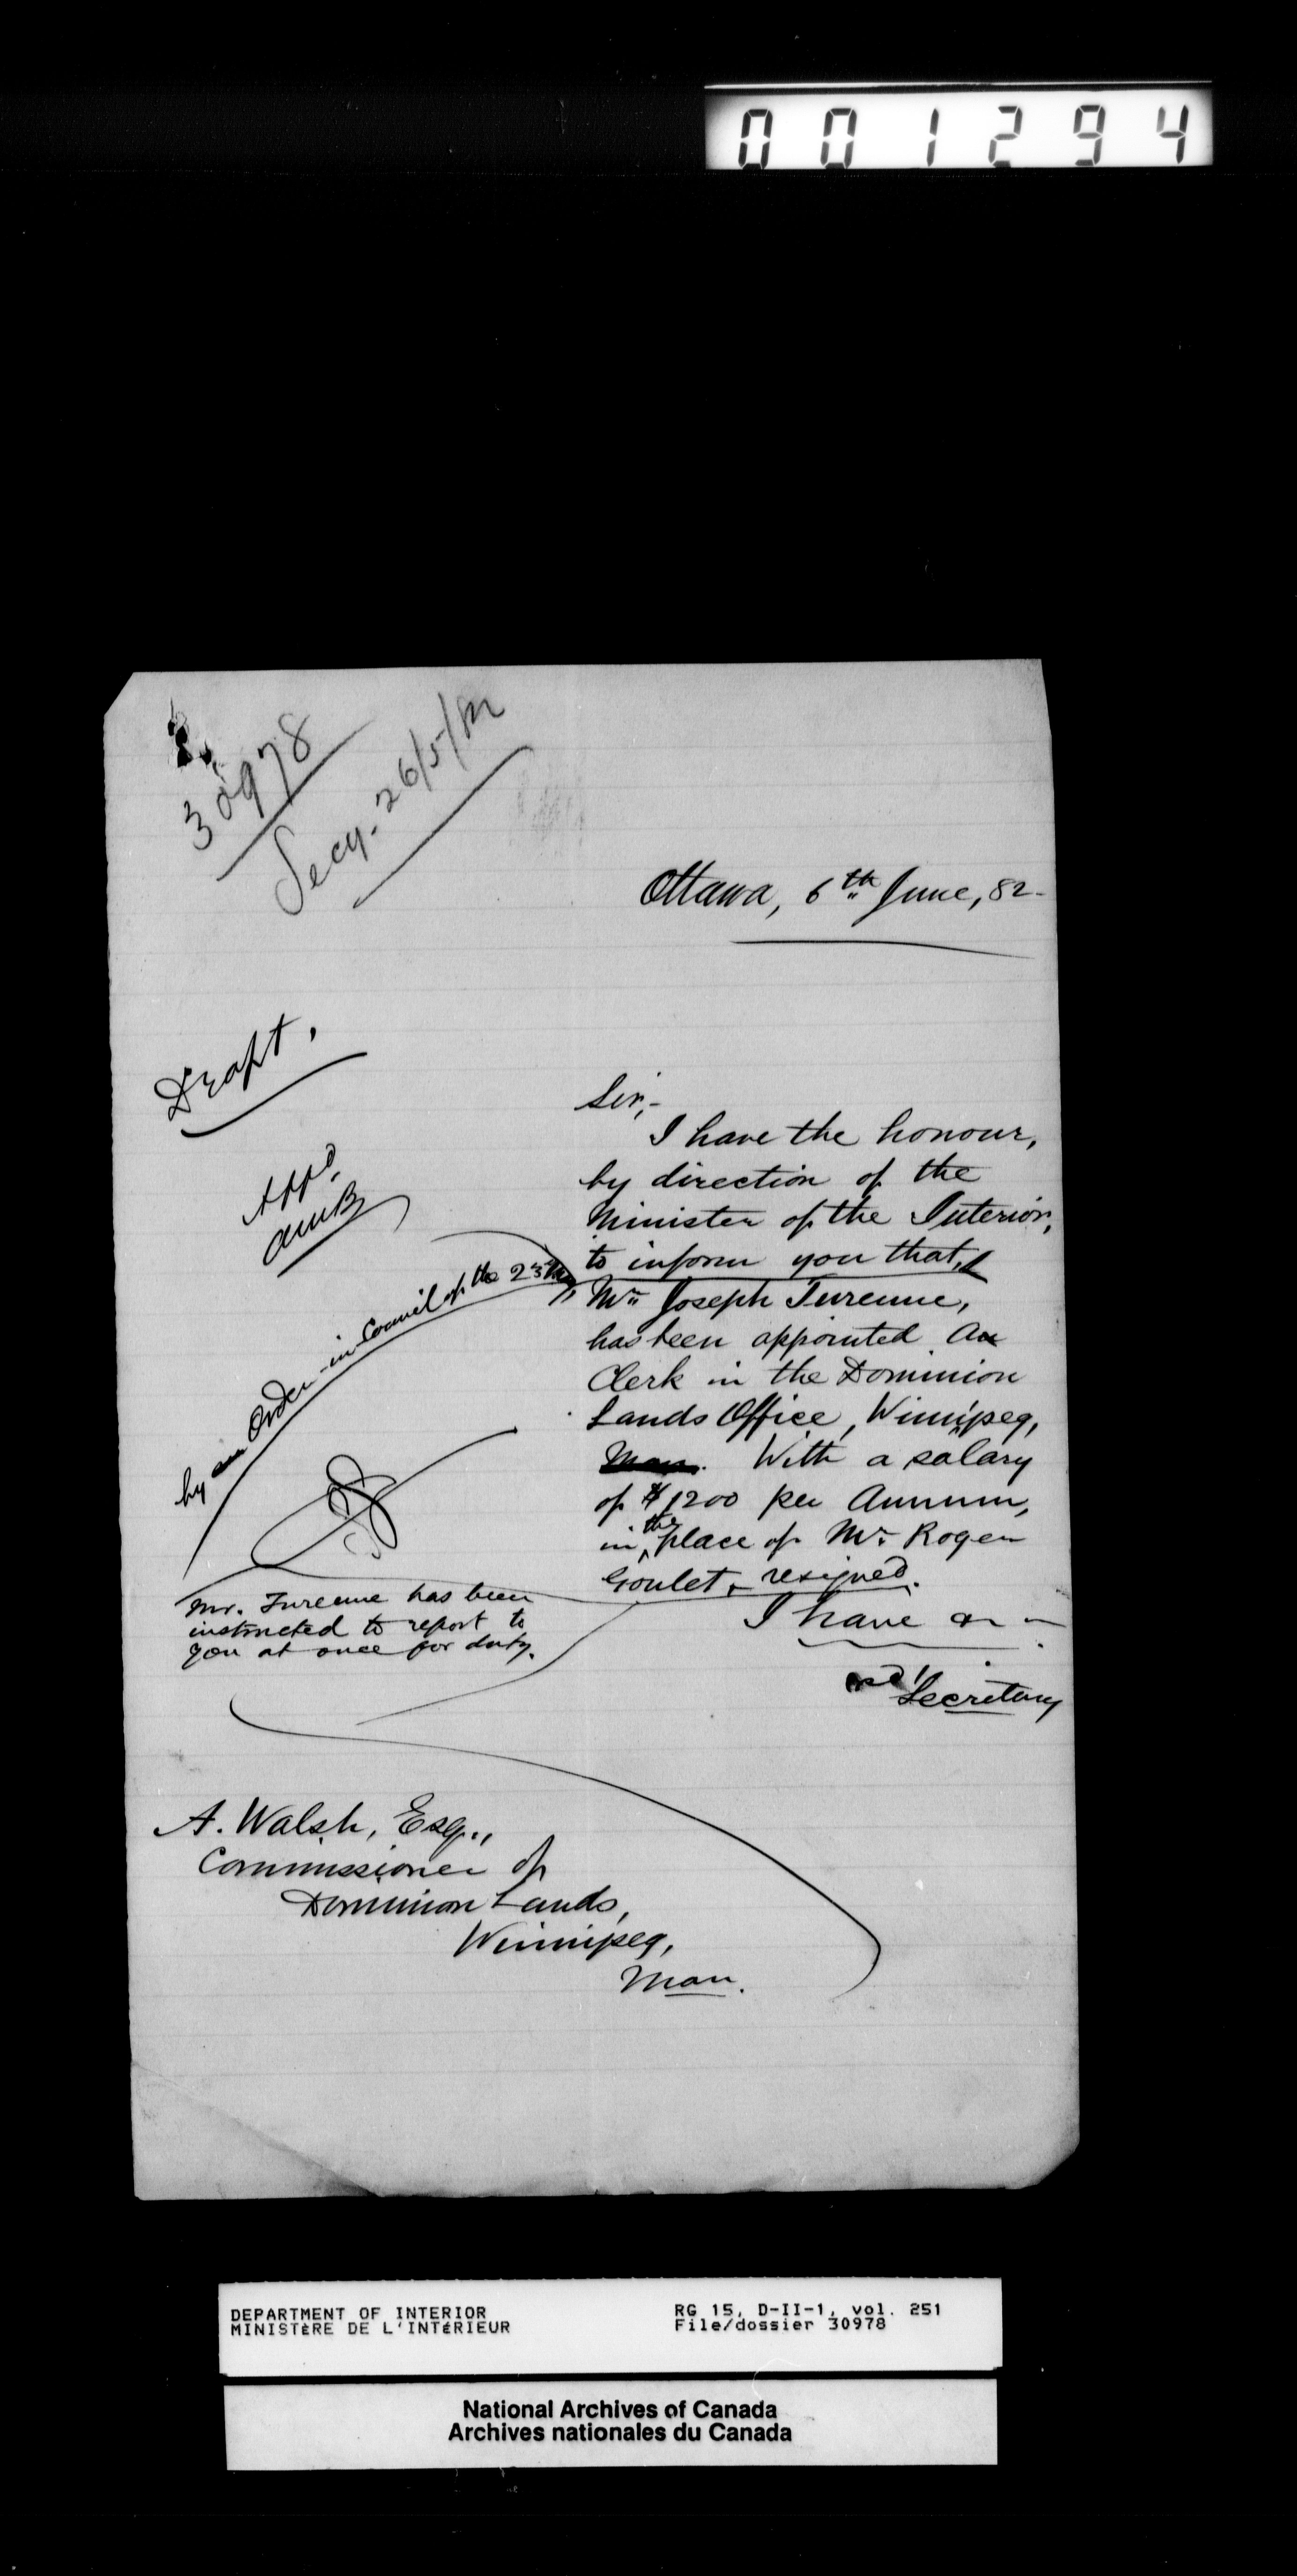 001294
30978
Secy. 26/5/82
Ottawa, 6th June, 82-
Draft.
Appd.
AMB
Sir,-
I have the honour,
by direction of the
Minister of the Interior,
to inform you that,
by an Order-in-Council of the 23rd
Mr. Joseph Turenne,
has been appointed a
Clerk in the Dominion
Lands Office, Winnipeg,
Man. With a salary
of $1200 per Annum,
in the place of Mr. Roger
Goulet, resigned.
Mr. Turenne has been
instructed to report to
you at once for duty.
I have
Secretary
A. Walsh, Esq.,
Commissioner of
Dominion Lands,
Winnipeg,
Man.
DEPARTMENT OF INTERIOR
MINISTÈRE DE L'INTÉRIEUR
RG 15, D-II-1, vol. 251
File/dossier 30978
National Archives of Canada
Archives nationales du Canada